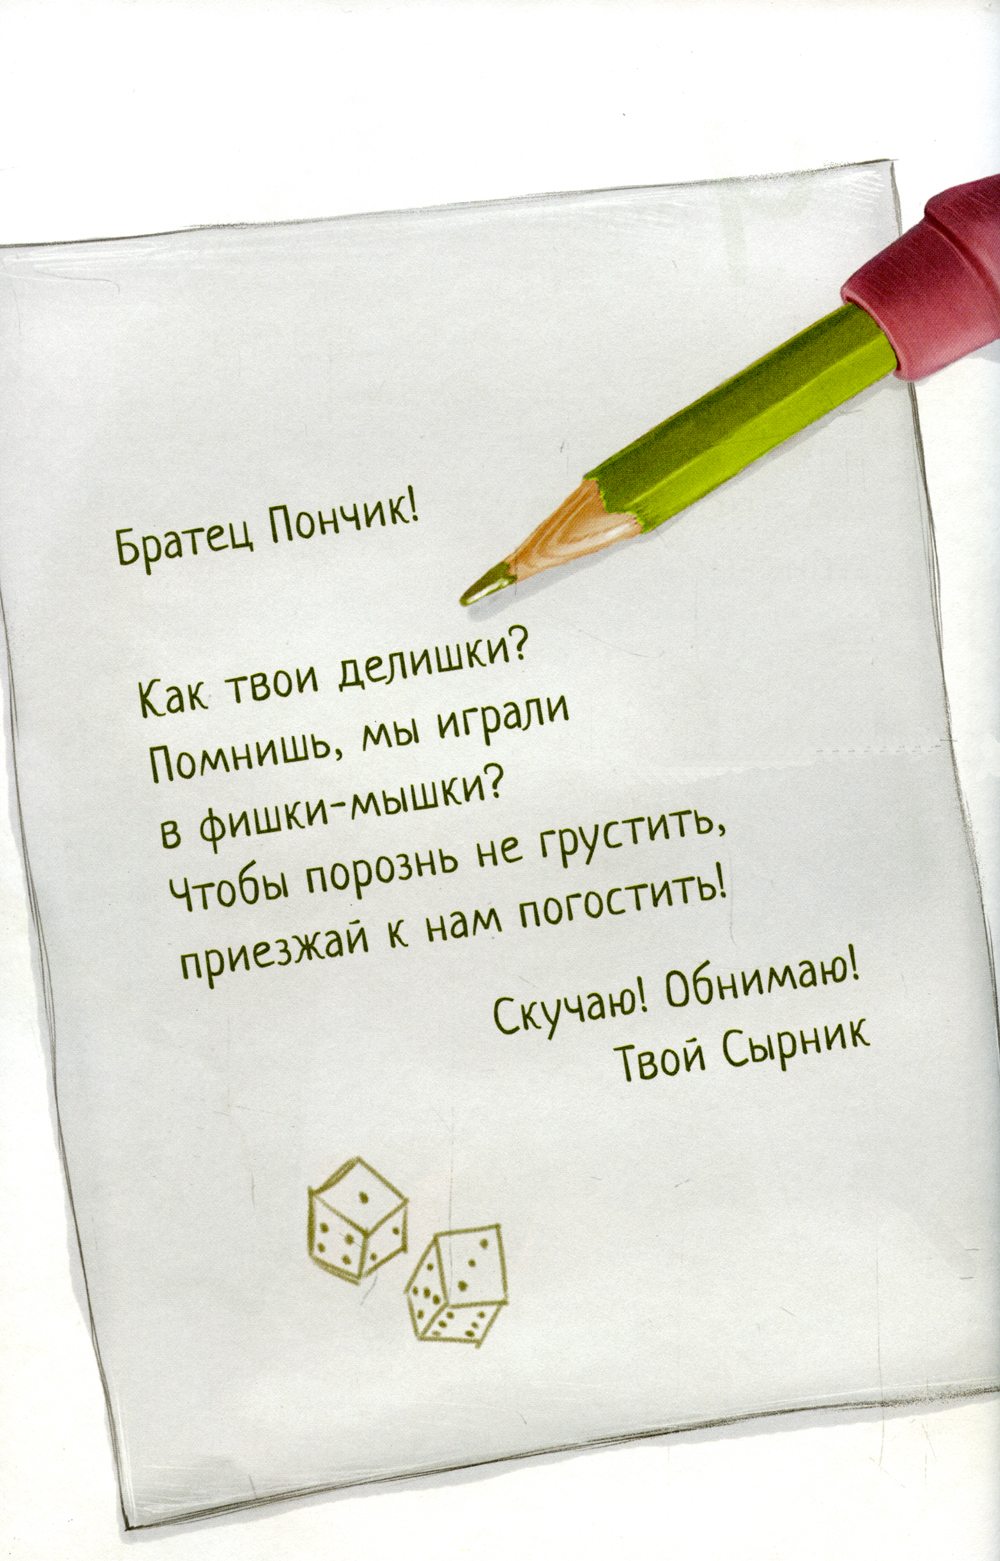 Братец Пончик!
Как твои делишки?
Помнишь, мы играли
в фишки-мышки?
Чтобы порознь не грустить,
приезжай к нам погостить!
Скучаю! Обнимаю!
Твой Сырник